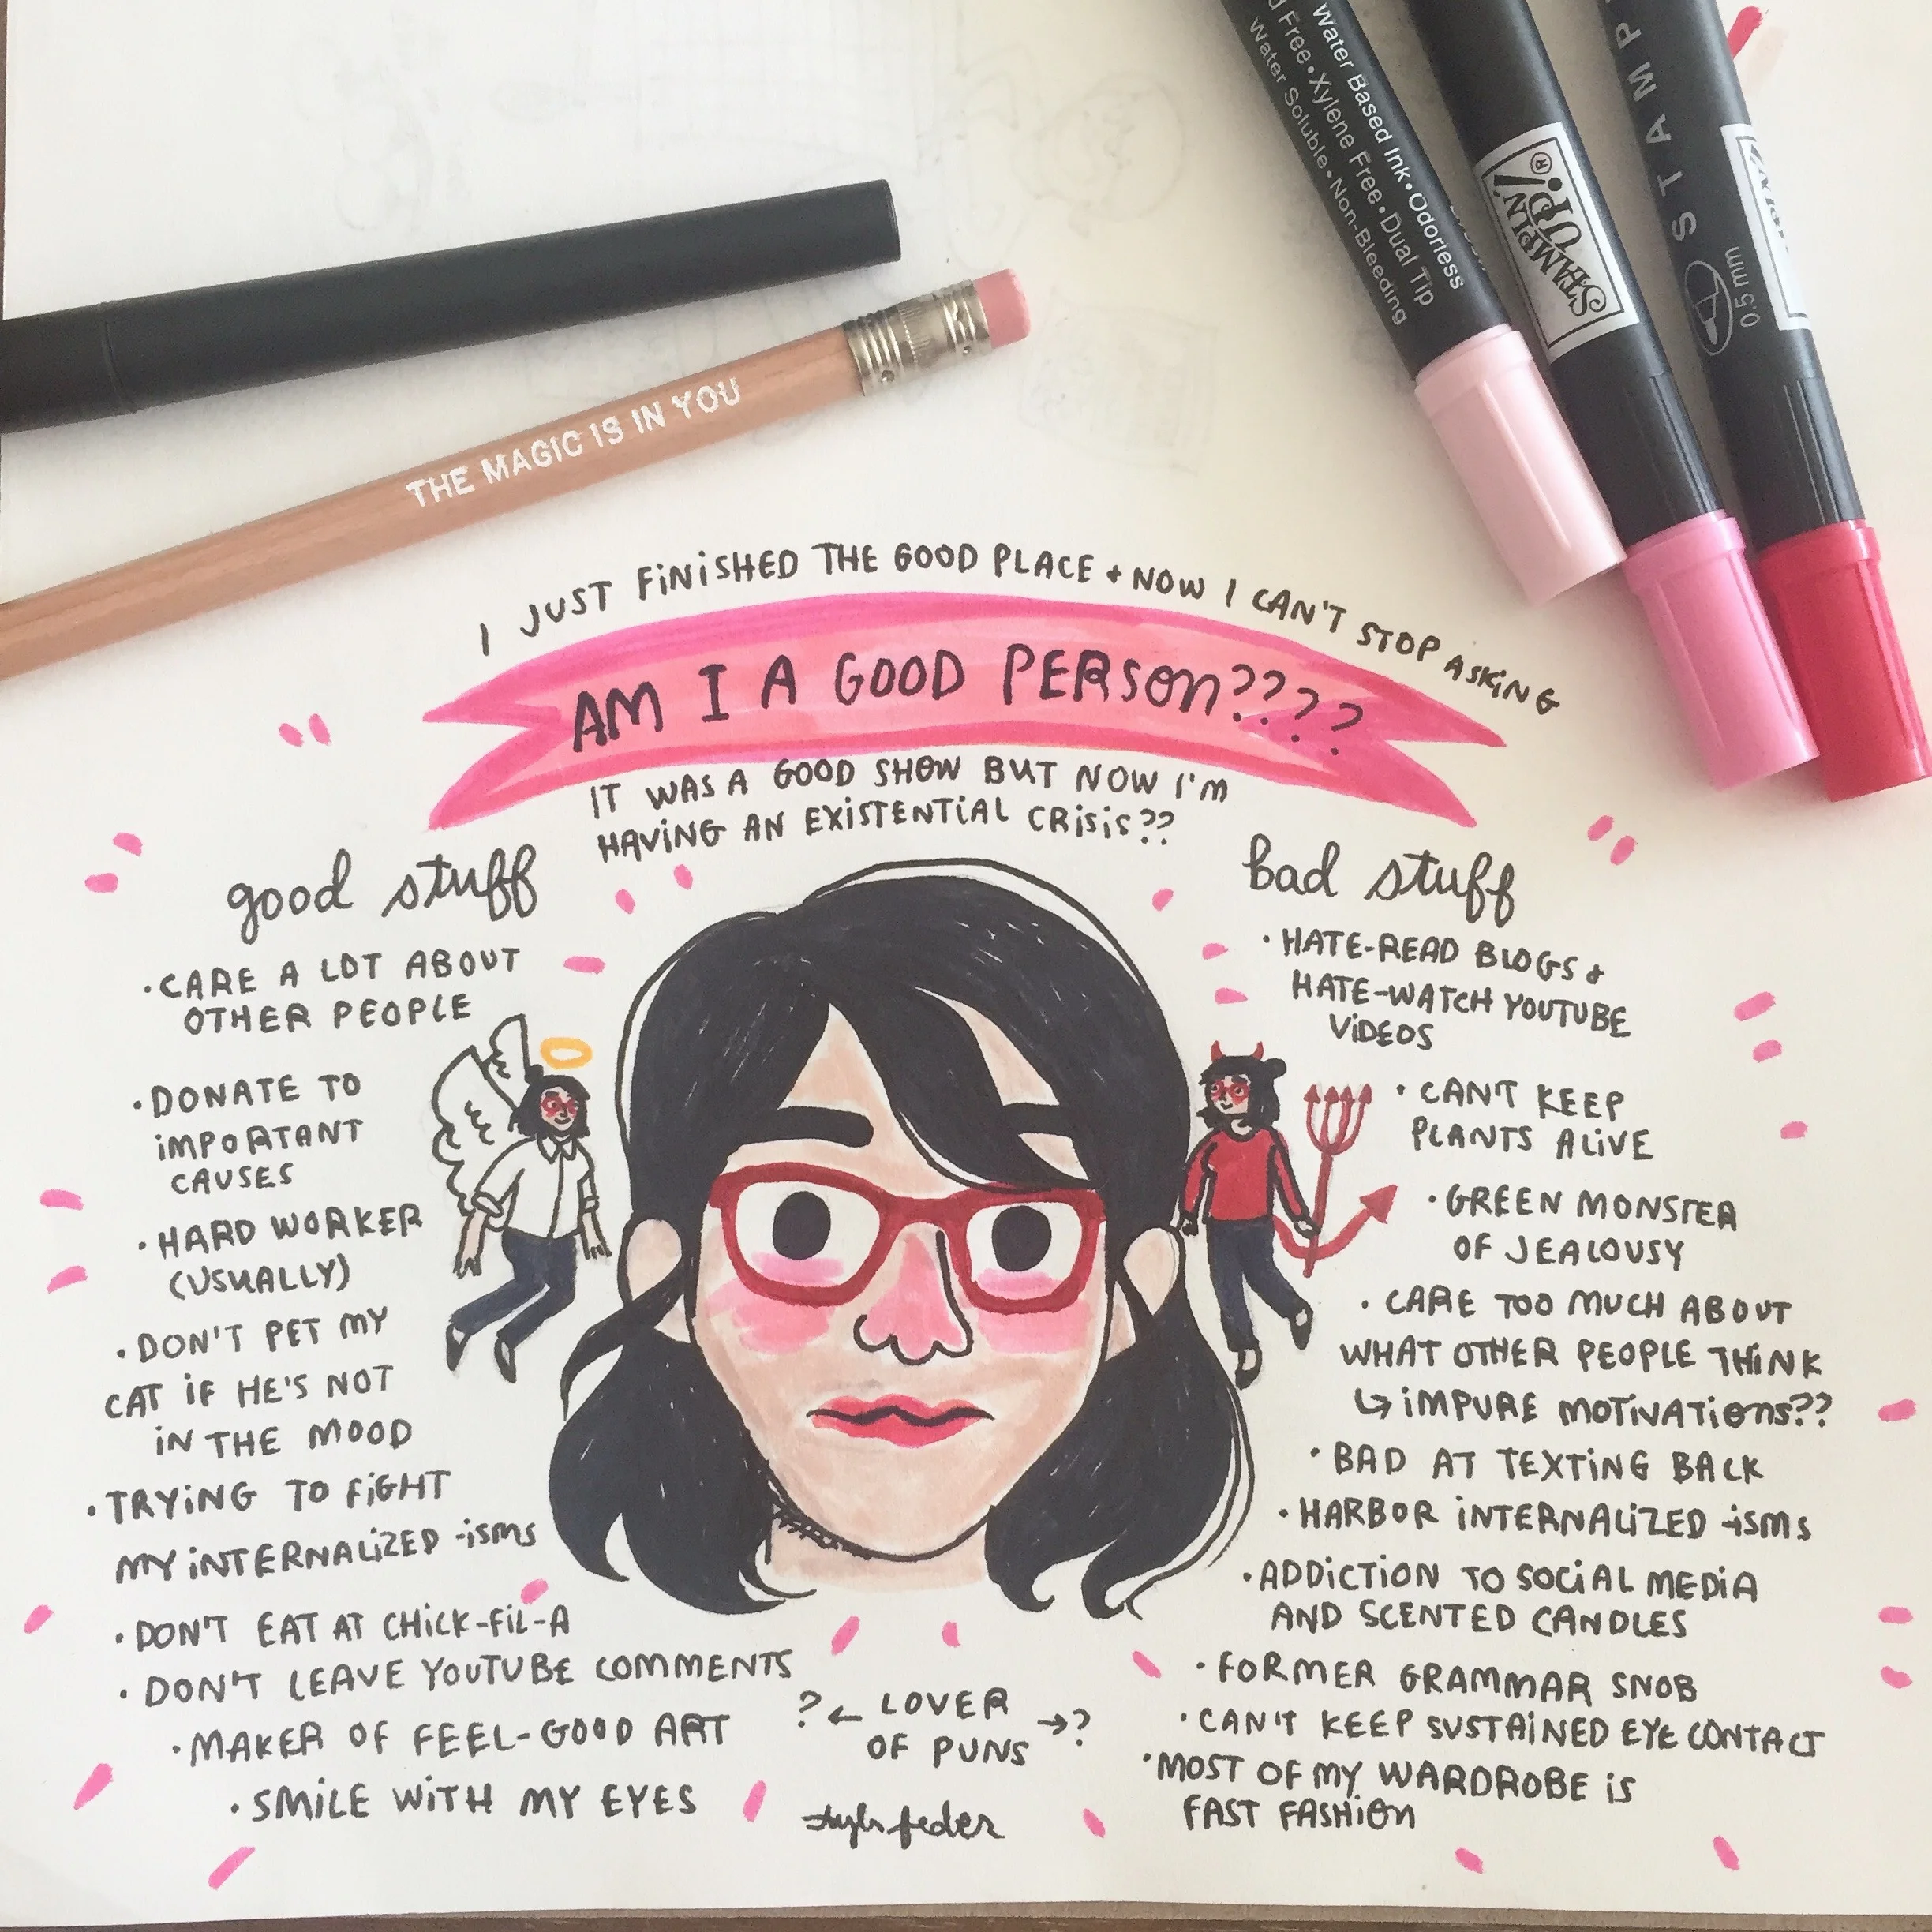 Water Based Ink • Odorless
d Free • Xylene Free • Dual Tip
Water Soluble • Non-Bleeding
STAMPIN' UP!®
STAMP
0.5 mm
THE MAGIC IS IN YOU
I JUST FINISHED THE GOOD PLACE + NOW I CAN'T STOP ASKING
AM I A GOOD PERSON????
IT WAS A GOOD SHOW BUT NOW I'M
HAVING AN EXISTENTIAL CRISIS??
good stuff
• CARE A LOT ABOUT
OTHER PEOPLE
• DONATE TO
IMPORTANT
CAUSES
• HARD WORKER
(USUALLY)
• DON'T PET MY
CAT IF HE'S NOT
IN THE MOOD
• TRYING TO FIGHT
MY INTERNALIZED -ISMS
• DON'T EAT AT CHICK-FIL-A
• DON'T LEAVE YOUTUBE COMMENTS
• MAKER OF FEEL-GOOD ART
• SMILE WITH MY EYES
? ← LOVER → ?
OF PUNS
bad stuff
• HATE-READ BLOGS +
HATE-WATCH YOUTUBE
VIDEOS
• CAN'T KEEP
PLANTS ALIVE
• GREEN MONSTER
OF JEALOUSY
• CARE TOO MUCH ABOUT
WHAT OTHER PEOPLE THINK
↳ IMPURE MOTIVATIONS??
• BAD AT TEXTING BACK
• HARBOR INTERNALIZED -ISMS
• ADDICTION TO SOCIAL MEDIA
AND SCENTED CANDLES
• FORMER GRAMMAR SNOB
• CAN'T KEEP SUSTAINED EYE CONTACT
• MOST OF MY WARDROBE IS
FAST FASHION
feder